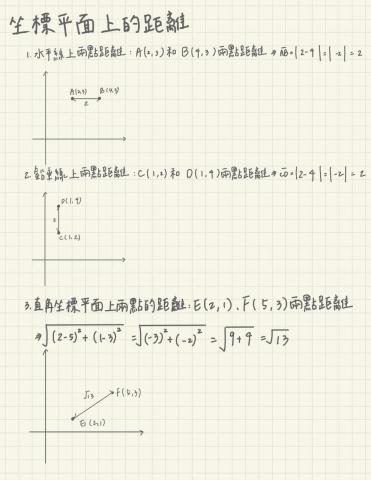 坐標平面上的距離
1. 水平線上兩點距離:A(2,3) 和 B(4,3) 兩點距離 ⇒ AB=|2-4|=|-2|=2
A(2,3) B(4,3)
2
2. 鉛垂線上兩點距離:C(1,2) 和 D(1,4) 兩點距離 ⇒ CD=|2-4|=|-2|=2
D(1,4)
2
C(1,2)
3. 直角坐標平面上兩點的距離:E(2,1)、F(5,3) 兩點距離
⇒ √(2-5)²+(1-3)² = √(-3)²+(-2)² = √9+4 = √13
√13 F(5,3)
E(2,1)